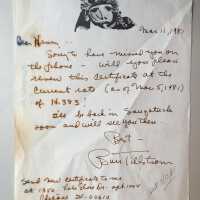 Mar 11, 1981
Dear Nancy --
Sorry to have missed you on
the phone - will you please
renew this certificate at the
current rate (as of Mar 5, 1981)
of 14.383!
I'll be back in Saugatuck
soon and will see you then
Best
Burr Tillstrom
Send new certificate to me
at 1350 Lake Shore Dr.
Chicago Ill 60610